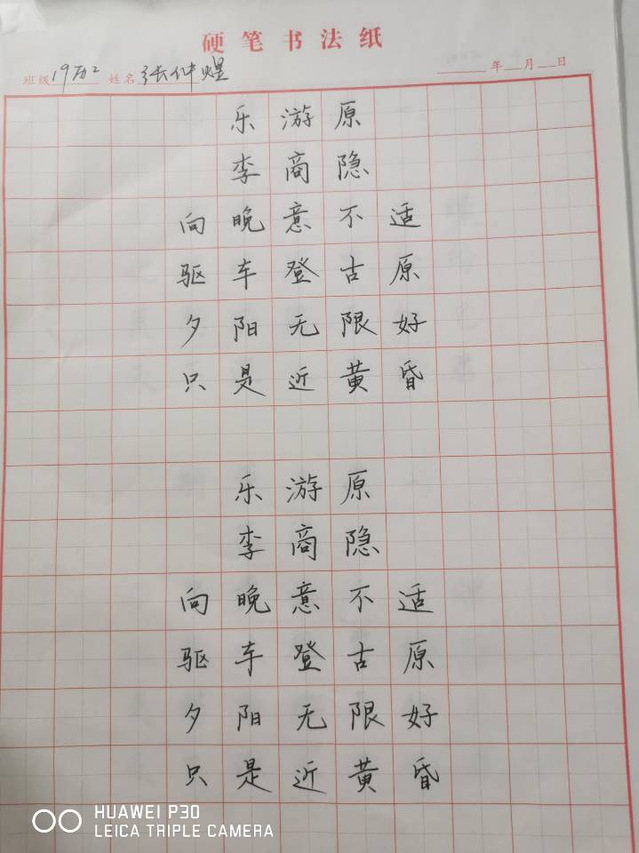 硬笔书法纸
班级 姓名 张仲煜 年 月 日
乐游原
李商隐
向晚意不适
驱车登古原
夕阳无限好
只是近黄昏
乐游原
李商隐
向晚意不适
驱车登古原
夕阳无限好
只是近黄昏
HUAWEI P30
LEICA TRIPLE CAMERA